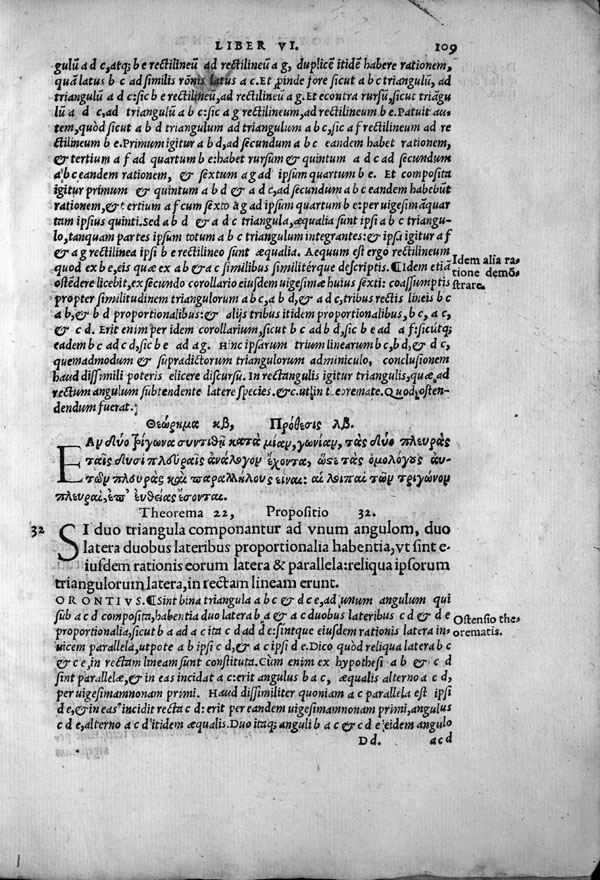 LIBER VI. 109
gulū a d c, atq; b e rectilineū ad rectilineū a g, duplicē itidē habere rationem,
quā latus b c ad similis rōnis latus a c. Et ꝓinde fore sicut a b c triangulū, ad
triangulū a d c: sic b e rectilineū, ad rectilineū a g. Et econtra rursū, sicut triāgu
lū a d c, ad triangulū a b c: sic a g rectilineum, ad rectilineum b e. Patuit au-
tem, quòd sicut a b d triangulum ad triangulum a b c, sic a f rectilineum ad re
ctilineum b e. Primum igitur a b d, ad secundum a b c eandem habet rationem,
& tertium a f ad quartum b e: habet rursum & quintum a d c ad secundum
a b c eandem rationem, & sextum a g ad ipsum quartum b e. Et composita
igitur primum & quintum a b d & a d c, ad secundum a b c eandem habebūt
rationem, & tertium a f cum sexto a g ad ipsum quartum b e: per uigesimāquar
tam ipsius quinti. Sed a b d & a d c triangula, æqualia sunt ipsi a b c triangu-
lo, tanquam partes ipsum totum a b c triangulum integrantes: & ipsa igitur a f
& a g rectilinea ipsi b e rectilineo sunt æqualia. Aequum est ergo rectilineum
quod ex b c, eis quæ ex a b & a c similibus similitérque descriptis. ¶Idem etiā
ostēdere licebit, ex secundo corollario eiusdem uigesimæ huius sexti: coassumptis
propter similitudinem triangulorum a b c, a b d, & a d c, tribus rectis lineis b c
a b, & b d proportionalibus: & alijs tribus itidem proportionalibus, b c, a c,
& c d. Erit enim per idem corollarium, sicut b c ad b d, sic b e ad a f: sicútq;
eadem b c ad c d, sic b e ad a g. Hinc ipsarum trium linearum b c, b d, & d c,
quemadmodum & supradictorum triangulorum adminiculo, conclusionem
haud dissimili poteris elicere discursu. In rectangulis igitur triangulis, quæ ad
rectum angulum subtendente latere species. &c. ut in theoremate. Quod osten-
dendum fuerat.
Idem alia ra-
tione demō-
strare.
Θεώρημα κβ, Πρόθεσις λβ.
Εὰν δύο τρίγωνα συντεθῇ κατὰ μίαν, γωνίαν, τὰς δύο πλευρὰς
ταῖς δυσὶ πλευραῖς ἀνάλογον ἔχοντα, ὥστε τὰς ὁμολόγους αὐ-
τῶν πλευρὰς καὶ παραλλήλους εἶναι: αἱ λοιπαὶ τῶν τριγώνων
πλευραὶ, ἐπ' ἐυθείας ἔσονται.
Theorema 22, Propositio 32.
32 SI duo triangula componantur ad vnum angulom, duo
latera duobus lateribus proportionalia habentia, vt sint e-
iusdem rationis eorum latera & parallela: reliqua ipsorum
triangulorum latera, in rectam lineam erunt.
ORONTIVS. ¶Sint bina triangula a b c & d c e, ad unum angulum qui
sub a c d composita, habentia duo latera b a & a c duobus lateribus c d & d e
proportionalia, sicut b a ad a c ita c d ad d e: sintque eiusdem rationis latera in-
uicem parallela, utpote a b ipsi c d, & a c ipsi d e. Dico quòd reliqua latera b c
& c e, in rectam lineam sunt constituta. Cùm enim ex hypothesi a b & c d
sint parallelæ, & in eas incidat a c: erit angulus b a c, æqualis alterno a c d,
per uigesimamnonam primi. Haud dissimiliter quoniam a c parallela est ipsi
d e, & in eas incidit recta c d: erit per eandem uigesimamnonam primi, angulus
c d e, alterno a c d itidem æqualis. Duo itaq; anguli b a c & c d e eidem angulo
Ostensio the-
orematis.
Dd. acd